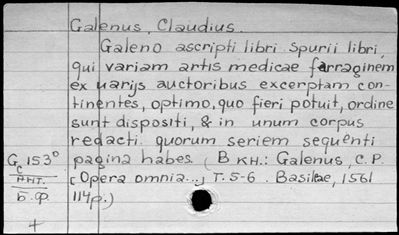 Galenus, Claudius.
Galeno ascripti libri. Spurii libri,
qui variam artis medicae farraginem
ex varijs auctoribus excerptam con-
tinentes, optimo, quo fieri potuit, ordine
sunt dispositi, & in unum corpus
redacti. quorum seriem sequenti
pagina habes. (В кн.: Galenus, C. P.
[Opera omnia...] T. 5-6. Basileae, 1561
114 p.)
G 153°
C
Ант.
Б. Ф.
+